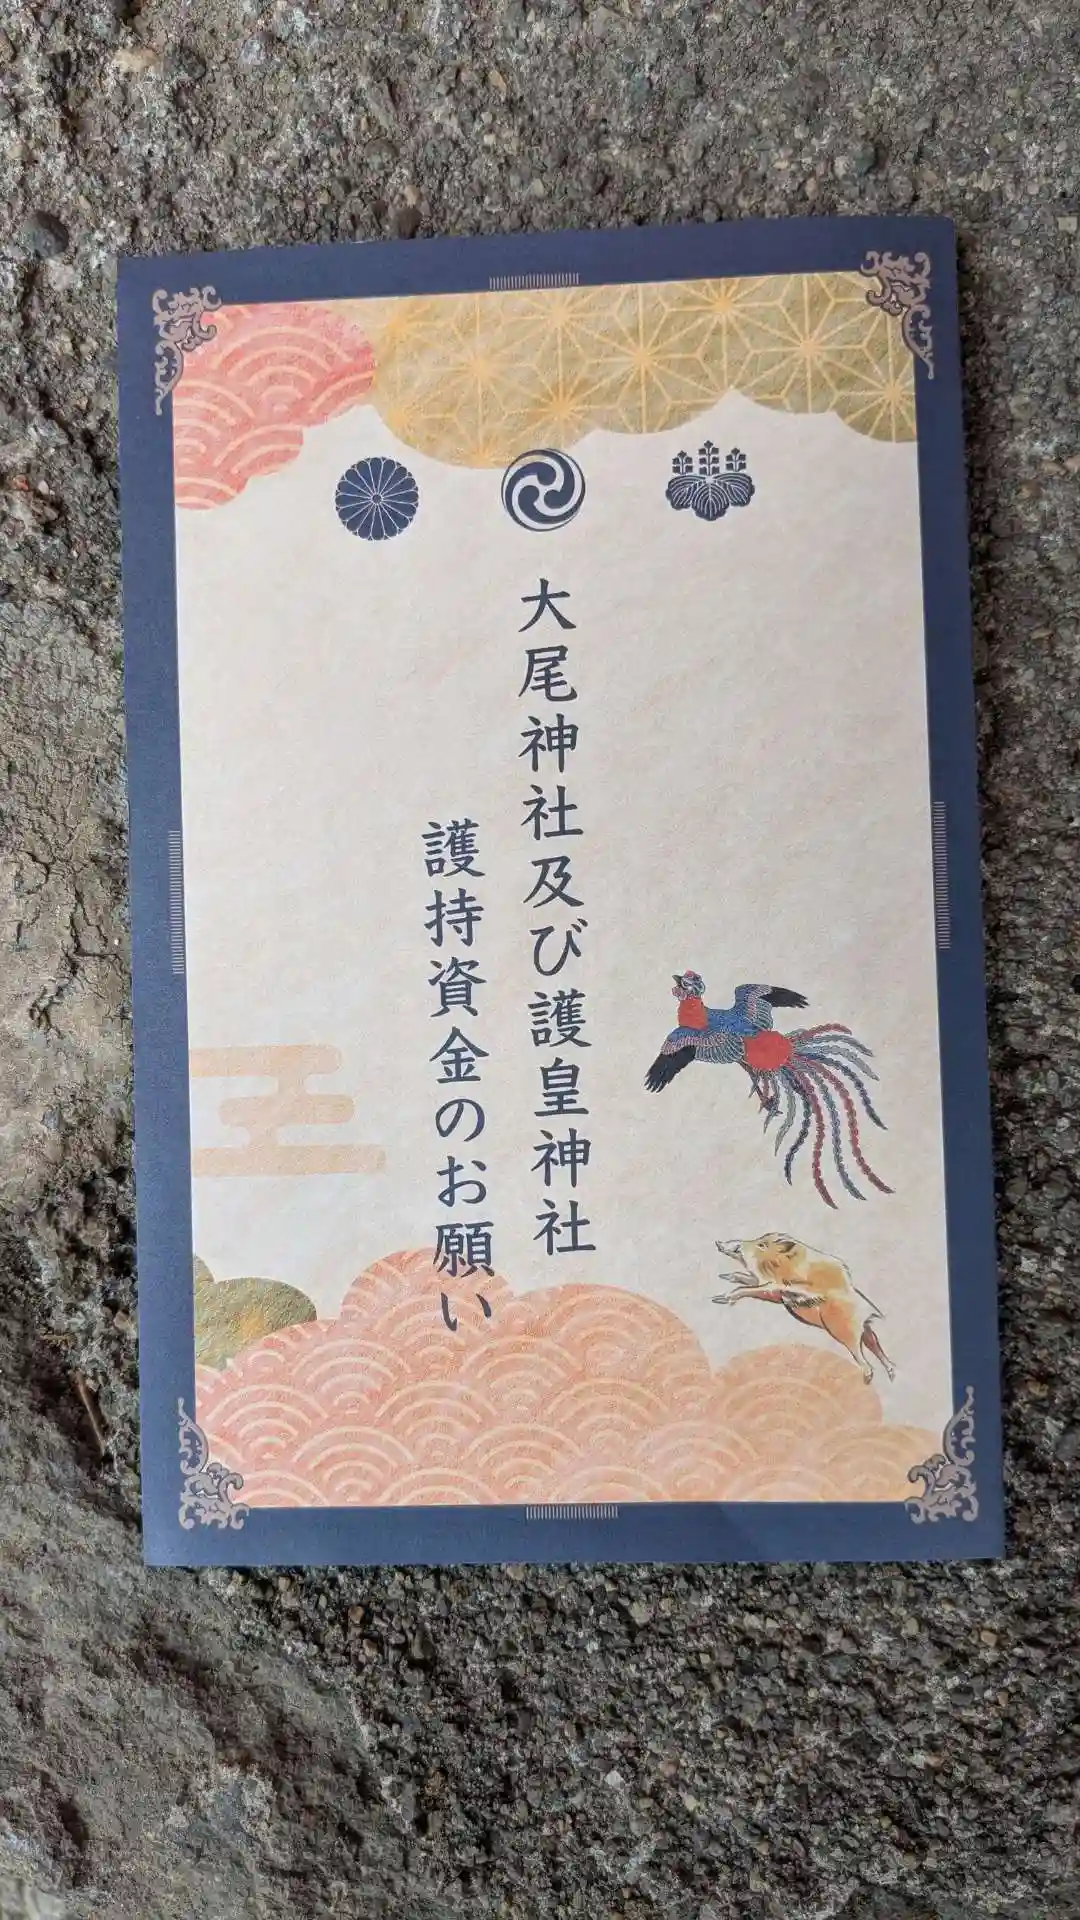 大尾神社及び護皇神社
護持資金のお願い